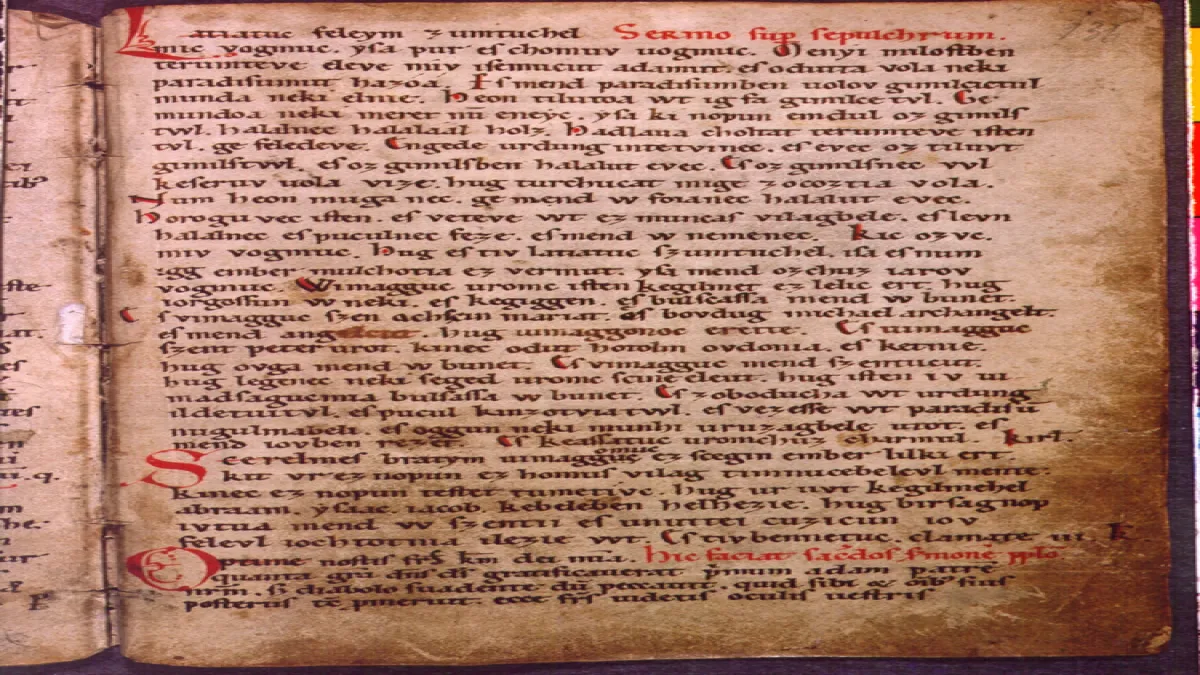 Latiatuc feleym zumtuchel Sermo sup sepulchrum.
mic vogmuc. ysa pur es chomuv uogmuc. Menyi milostben
terumteve eleve miv isemucut adamut. es odutta vola neki
paradisumut hazoá. Es mend paradisumben uolov gimilcictul
munda neki elnie. Heon tilutoa wt ig fa gimilce tvl. Ge
mundoa neki meret nu eneyc. ysa ki nopun emdul oz gimils
twl. halalnec halalaal holz. Hadlaua choltat terumteve isten
tvl. ge feledeve. Engede urdung intetvinec. es evec oz tiluvt
gimilstwl. es oz gimilsben halalut evec. Es oz gimilsnec vvl
keseruv uola vize. hug turchucat mige zocoztia vola.
Num heon muga nec. ge mend w foianec halalut evec.
Horogu vec isten. es veteve wt ez muncas vilagbele. es levn
halalnec es puculnec feze. es mend w nemenec. Kic ozvc.
miv vogmuc. Hug es tiv latiatuc szumtuchel. isa es num
igg ember mulchotia ez vermut. ysa mend ozchuz iarov
vogmuc. Wimagguc uromc isten kegilmet ez lelic ert. hug
iorgossun w neki. es kegiggen. es bulscassa mend w bunet.
Es vimagguc szen achscin mariat. es bovdug michael archangelt.
es mend angelcut. hug uimaggonoc erette. Es uimagguc
szent peter urot. kinec odut hotolm ovdonia. es ketnie.
hug ovga mend w bunet. Es vimagguc mend szentucut.
hug legenec neki seged uromc scine eleut. hug isten iv ui
madsaguemia bulsassa w bunet. Es zoboducha wt urdung
ildetuitvl. es pucul kinzotviatwl. es vezesse wt paradisu
nugulmabeli. es oggun neki munhi uruzagbele utot. es
mend iovben rezet. Es keassatuc uromchuz charmul. Kirl.
Scerelmes bratym uimaggomuc ez scegin ember lilki ert.
kit vr ez nopun ez homus vilag timnucebelevl mente.
kinec ez nopun testet tumetivc. hug ur uvt kegilmehel
abraam. ysaac. iacob. kebeleben helhezie. hug birsagnop
ivtua mend w szentii es unuttei cuzicun iov
felevl iochtotnia ilezie wt. Es tiv bennetuc. clamate iii. K
hic faciat sac̄dos s̄monē pplo
quanta gr̄a primum adam patrē
nrm. diabolo suadente quid sibi
posteris ecce uidetis oculis uestris